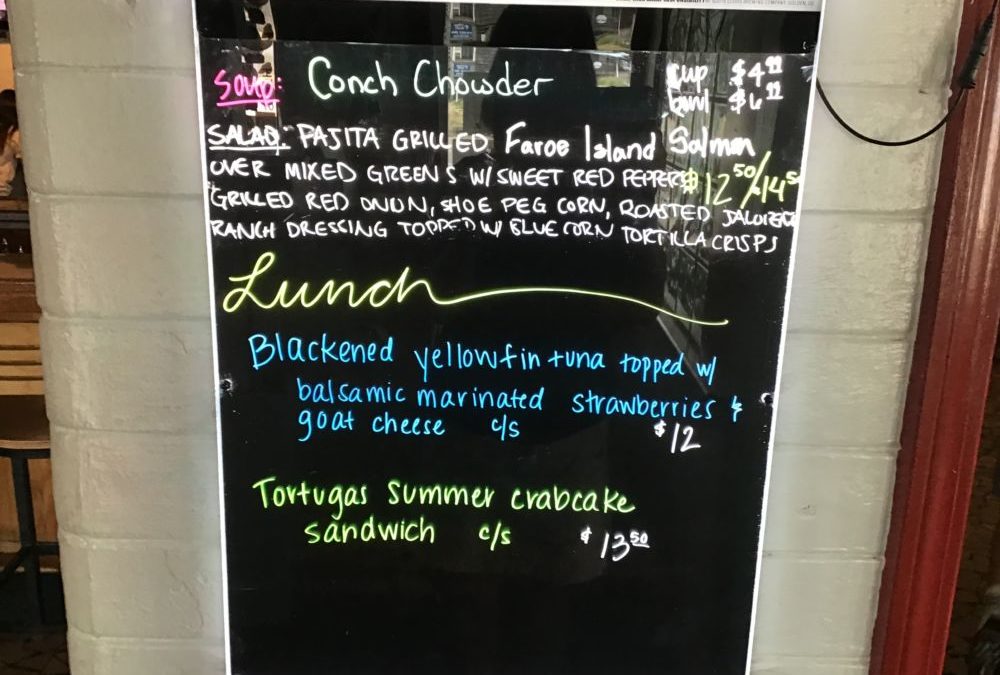 Soup: Conch Chowder cup $4.99
bowl $6.99
SALAD: PAJITA GRILLED Faroe Island Salmon
OVER MIXED GREENS W/ SWEET RED PEPPERS $12 50/14 5
GRILLED RED ONION, SHOE PEG CORN, ROASTED
RANCH DRESSING TOPPED W/ BLUE CORN TORTILLA CRISPS
Lunch
Blackened yellowfin tuna topped w/
balsamic marinated strawberries &
goat cheese c/s $12
Tortugas Summer crabcake
sandwich c/s $13 50